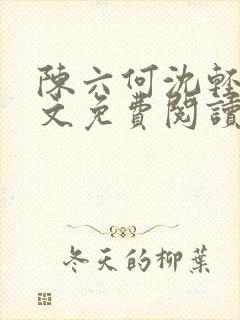 陳六何沈輕
文免費閱讀
冬天的柳葉